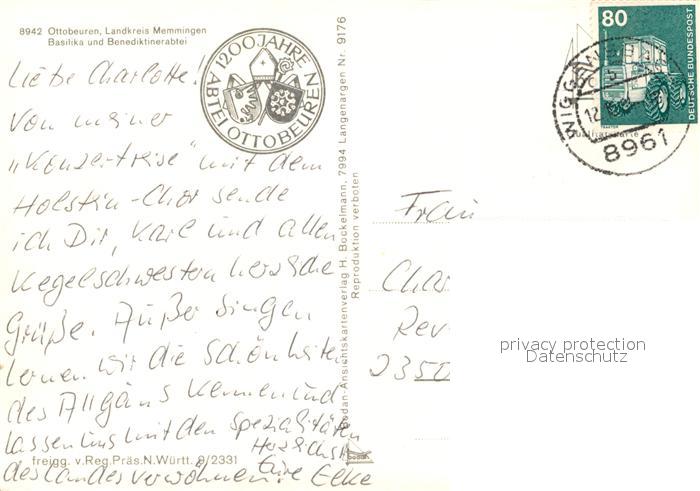 8942 Ottobeuren, Landkreis Memmingen
Basilika und Benediktinerabtei
1200 JAHRE
ABTEI OTTOBEUREN
Liebe Charlotte!
Von meiner
„Konzertreise" mit dem
Holstein-Chor sende
ich Dir, Karl und allen
Kegelschwestern herzliche
Grüße. Außer Singen
lernen wir die Schönheiten
des Allgäus kennen und
lassen uns mit den Spezialitäten
des Landes verwöhnen.
Herzlichst
Eure Elke
freigg. v. Reg. Präs. N. Württ. 9/2331
Bodan-Ansichtskartenverlag H. Bockelmann, 7994 Langenargen Nr. 9176
Reproduktion verboten
bodan
80
DEUTSCHE BUNDESPOST
TRAKTOR
WIGGENSBACH
8961
Qualitätskarte
Frau
Char
Rev
2350
privacy protection
Datenschutz